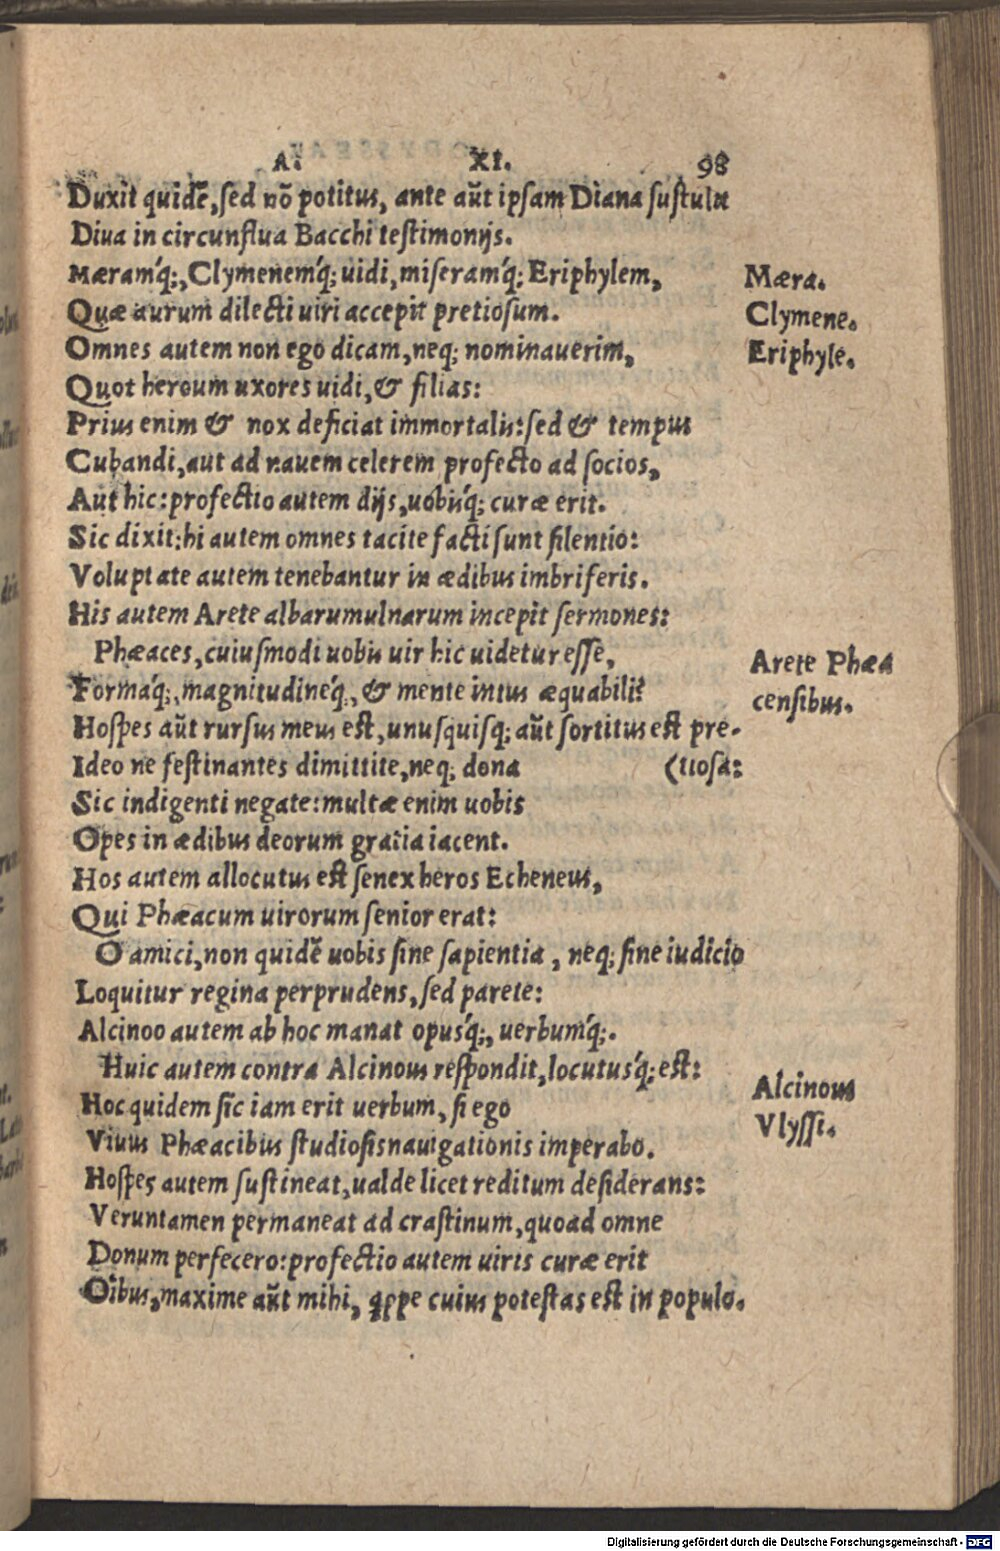 Λ. XI. 98
Duxit quidē, sed nō potitus, ante aūt ipsam Diana sustulit
Diua in circunflua Bacchi testimonijs.
Mæramq́;, Clymenemq́; uidi, miseramq́; Eriphylem,
Mæra.
Quæ aurum dilecti uiri accepit pretiosum.
Clymene.
Omnes autem non ego dicam, neq; nominauerim,
Eriphyle.
Quot heroum uxores uidi, & filias:
Prius enim & nox deficiat immortalis: sed & tempus
Cubandi, aut ad nauem celerem profecto ad socios,
Aut hic: profectio autem dijs, uobisq́; curæ erit.
Sic dixit: hi autem omnes tacite facti sunt silentio:
Voluptate autem tenebantur in ædibus imbriferis.
His autem Arete albarumulnarum incepit sermones:
Phæaces, cuiusmodi uobis uir hic uidetur esse,
Arete Phæa
Formaq́;, magnitudineq́;, & mente intus æquabili?
censibus.
Hospes aūt rursus meus est, unusquisq; aūt sortitus est pre-
Ideo ne festinantes dimittite, neq; dona (tiosa:
Sic indigenti negate: multæ enim uobis
Opes in ædibus deorum gratia iacent.
Hos autem allocutus est senex heros Echeneus,
Qui Phæacum uirorum senior erat:
O amici, non quidē uobis sine sapientia, neq; sine iudicio
Loquitur regina perprudens, sed parete:
Alcinoo autem ab hoc manat opusq́;, uerbumq́;.
Huic autem contra Alcinous respondit, locutusq́; est:
Alcinous
Hoc quidem sic iam erit uerbum, si ego
Vlyssi.
Viuus Phæacibus studiosis nauigationis imperabo.
Hospes autem sustineat, ualde licet reditum desiderans:
Veruntamen permaneat ad crastinum, quoad omne
Donum perfecero: profectio autem uiris curæ erit
Oībus, maxime aūt mihi, qppe cuius potestas est in populo.
Digitalisierung gefördert durch die Deutsche Forschungsgemeinschaft - DFG